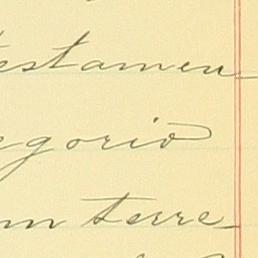 estamen-
egorio
m terre-